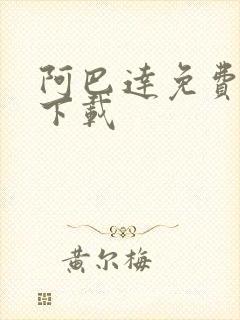 阿巴達免費
下載
黄尔梅